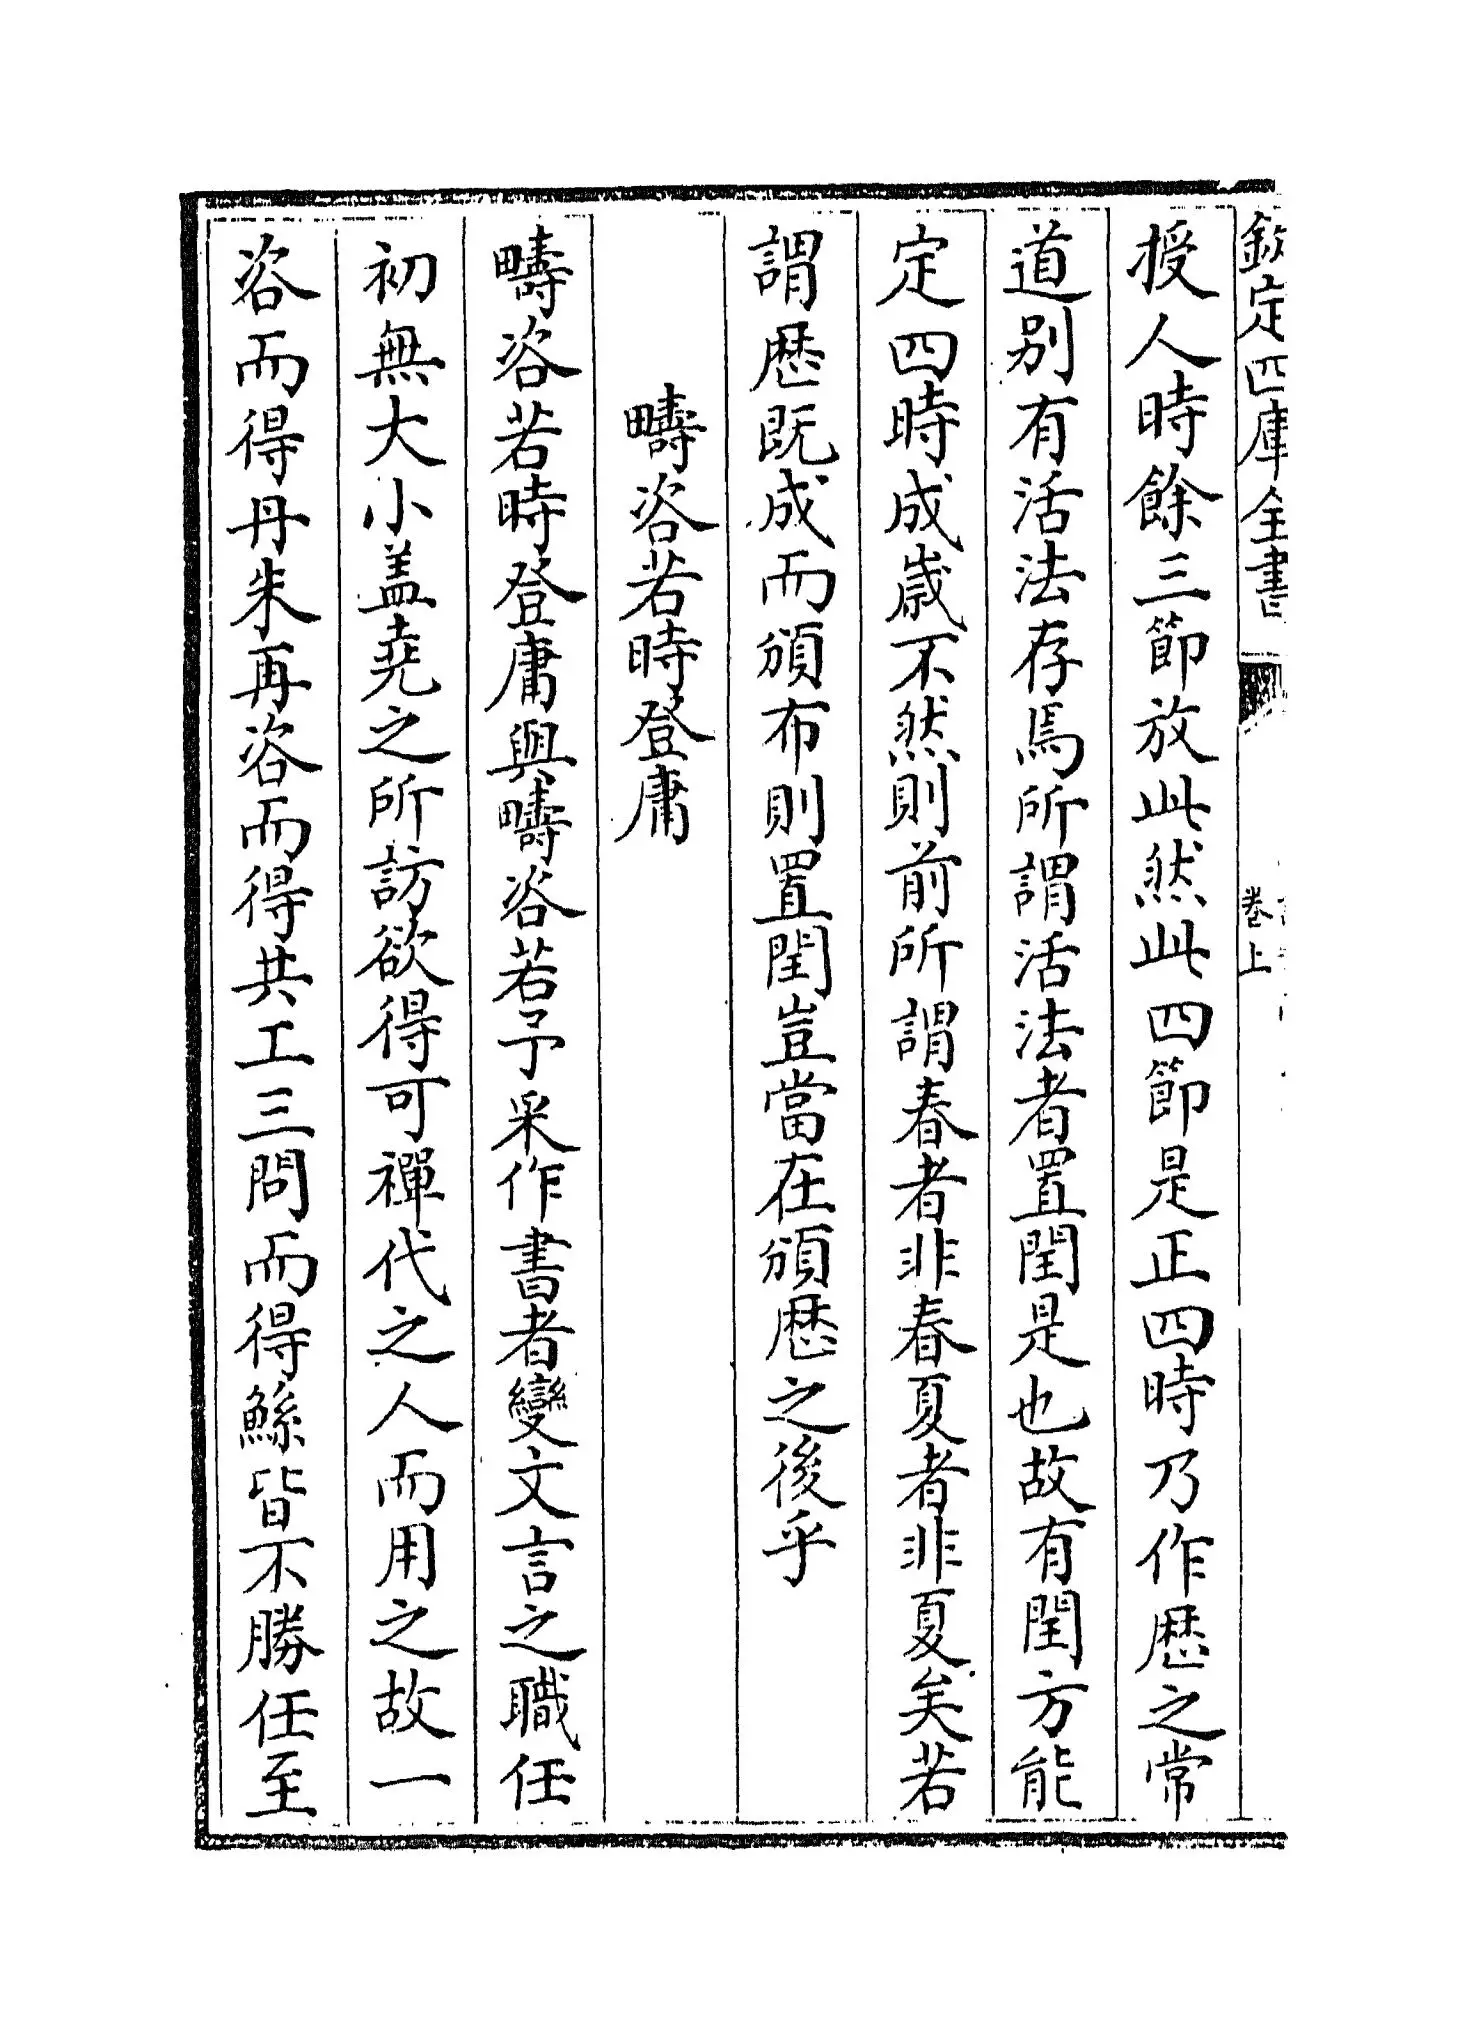 欽定四庫全書
卷上
授人時餘三節放此然此四節是正四時乃作歴之常
道别有活法存焉所謂活法者置閏是也故有閏方能
定四時成歲不然則前所謂春者非春夏者非夏矣若
謂歴既成而頒布則置閏豈當在頒歴之後乎
疇咨若時登庸
疇咨若時登庸與疇咨若予采作書者變文言之職任
初無大小盖堯之所訪欲得可禪代之人而用之故一
咨而得丹朱再咨而得共工三問而得鯀皆不勝任至